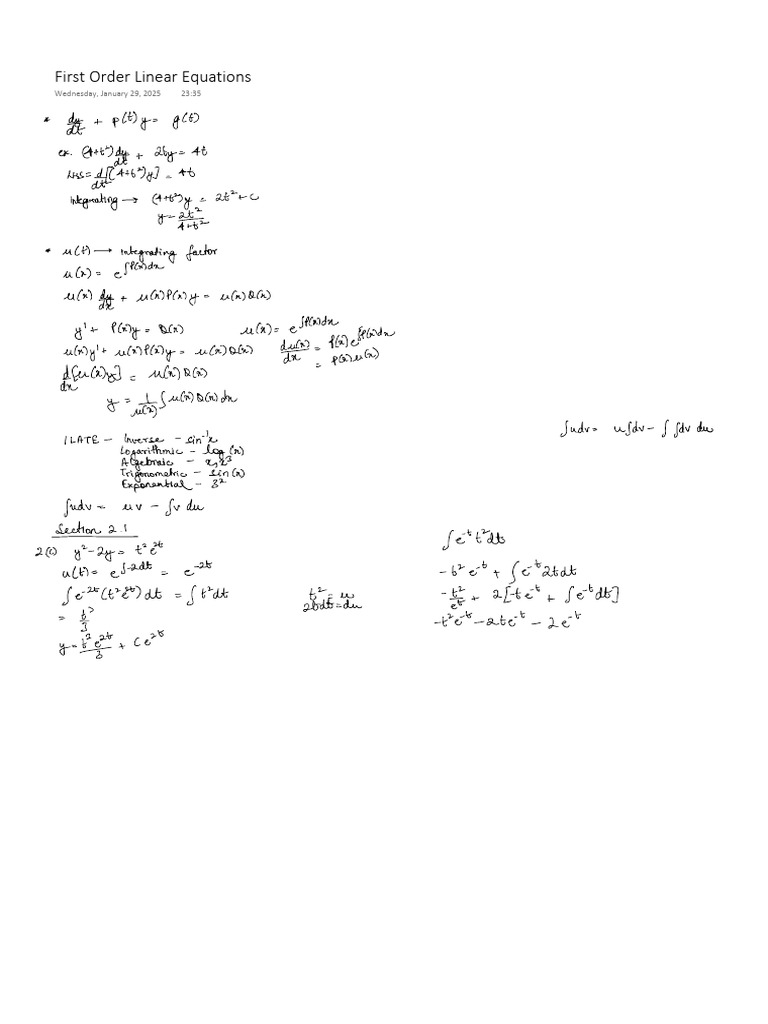 First Order Linear Equations
Wednesday, January 29, 2025 23:35
* dy/dt + p(t) y = g(t)
ex. (4+t²) dy/dt + 2ty = 4t
LHS = d/dt [(4+t²)y] = 4t
Integrating → (4+t²)y = 2t² + C
y = 2t²/4+t²
• u(t) → integrating factor
u(x) = e^∫P(x)dx
u(x) dy/dx + u(x)P(x)y = u(x)Q(x)
y' + P(x)y = Q(x) u(x) = e^∫P(x)dx
u(x)y' + u(x)P(x)y = u(x)Q(x) du(x)/dx = P(x) e^∫P(x)dx
= P(x)u(x)
d[u(x)y]/dx = u(x)Q(x)
y = 1/u(x) ∫u(x)Q(x)dx
∫udv = u∫dv - ∫∫dv du
ILATE - Inverse - sin⁻¹x
Logarithmic - log(x)
Algebraic - x, x³
Trigonometric - sin(x)
Exponential - 3²
∫udv = uv - ∫v du
Section 2.1
2(c) y² - 2y = t² e^2t
u(t) = e^∫-2dt = e^-2t
∫e^-2t (t² e^2t) dt = ∫t² dt
= t³/3
y = t² e^2t/3 + C e^2t
t² = u
2tdt = du
∫e^-t t² dt
-t² e^-t + ∫e^-t 2tdt
-t²/e^t + 2[-te^-t + ∫e^-t dt]
-t² e^-t - 2te^-t - 2e^-t